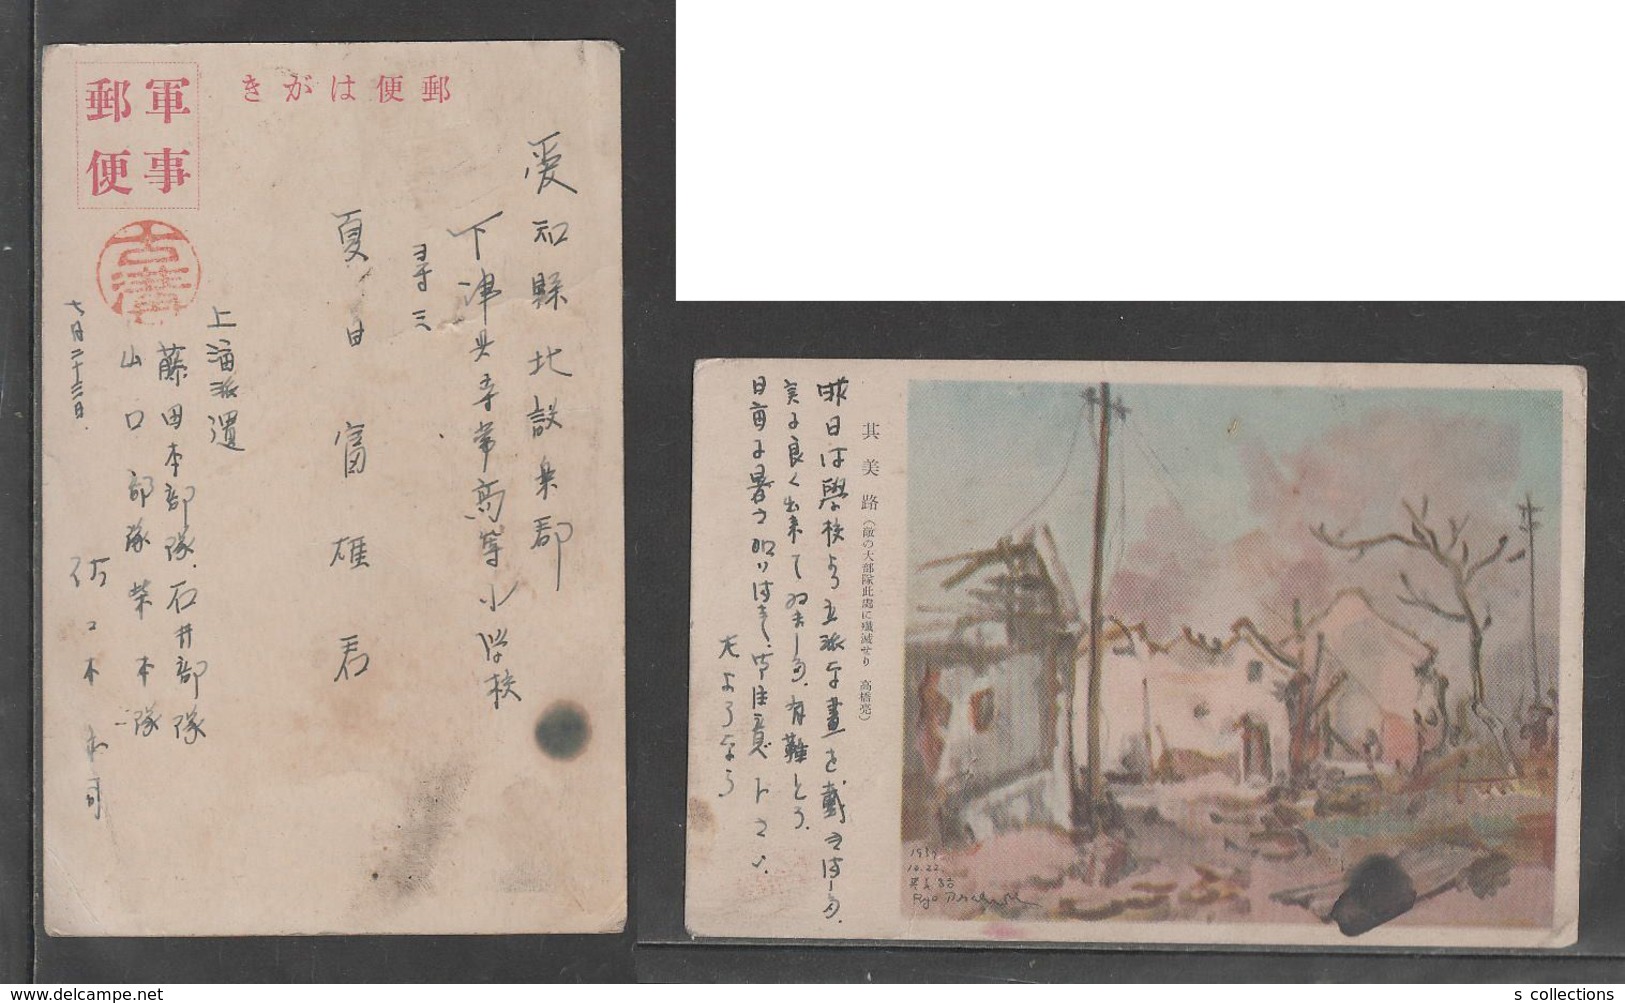 郵便はがき
軍事
郵便
愛知縣北設楽郡
下津具尋常高等小学校
尋三
夏目富雄君
上海派遣
藤田本部隊.石井部隊
山口部隊荣本隊
佐々木
七月二十三日.
其美路(敵の大部隊此處に殲滅せり 高橋亮)
昨日は學校より立派な畫を戴き
実に良く出来て
有難とう.
日毎に暑さ加はる.御注意下さい.
さよなら
1937
10.22
Ryo
s collections